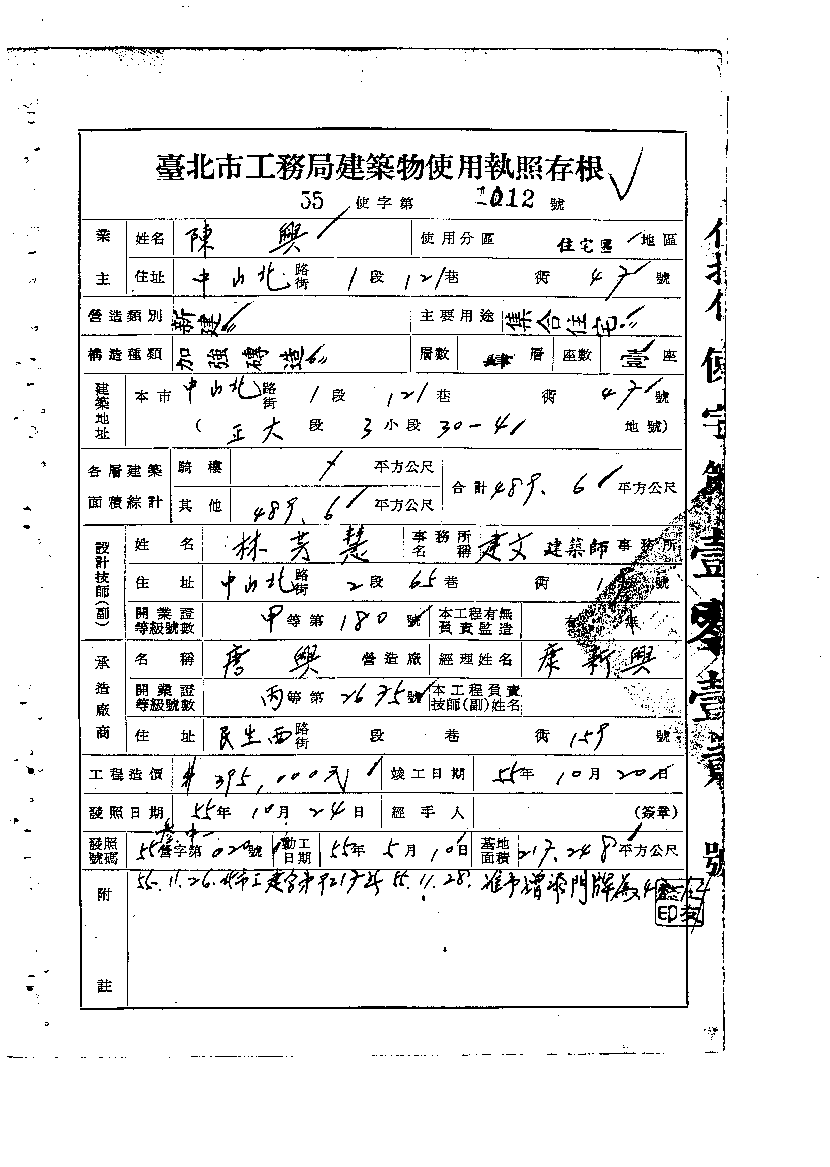 臺北市工務局建築物使用執照存根
55 使字第 1012 號
業主 姓名 陳興 使用分區 住宅區 地區
住址 中山北 路街 1 段 121 巷 衖 47 號
營造類別 新建 主要用途 集合住宅
構造種類 加強磚造 層數 肆 層 座數 壹 座
建築地址 本市 中山北 路街 1 段 121 巷 衖 47 號
( 正大 段 3 小段 30-41 地號)
各層建築面積綜計 騎樓 平方公尺 合計 489.61 平方公尺
其他 489.61 平方公尺
設計技師(副) 姓名 林芳慧 事務所名稱 建文 建築師 事務所
住址 中山北 路街 2 段 65 巷 衖 號
開業證等級號數 甲 等第 180 號 本工程有無負責監造
承造廠商 名稱 唐興 營造廠 經理姓名 康新興
開業證等級號數 丙 等第 2675 號 本工程負責技師(副)姓名
住址 民生西 路街 段 巷 衖 159 號
工程造價 $395,000元 竣工日期 55年 10月 20日
發照日期 55年 10月 24日 經手人 (簽章)
發照號碼 55營字第 020 號 動工日期 55年 5月 10日 基地面積 217.248 平方公尺
附註 55.11.28. 准予增添門牌為
使字第壹零壹貳號